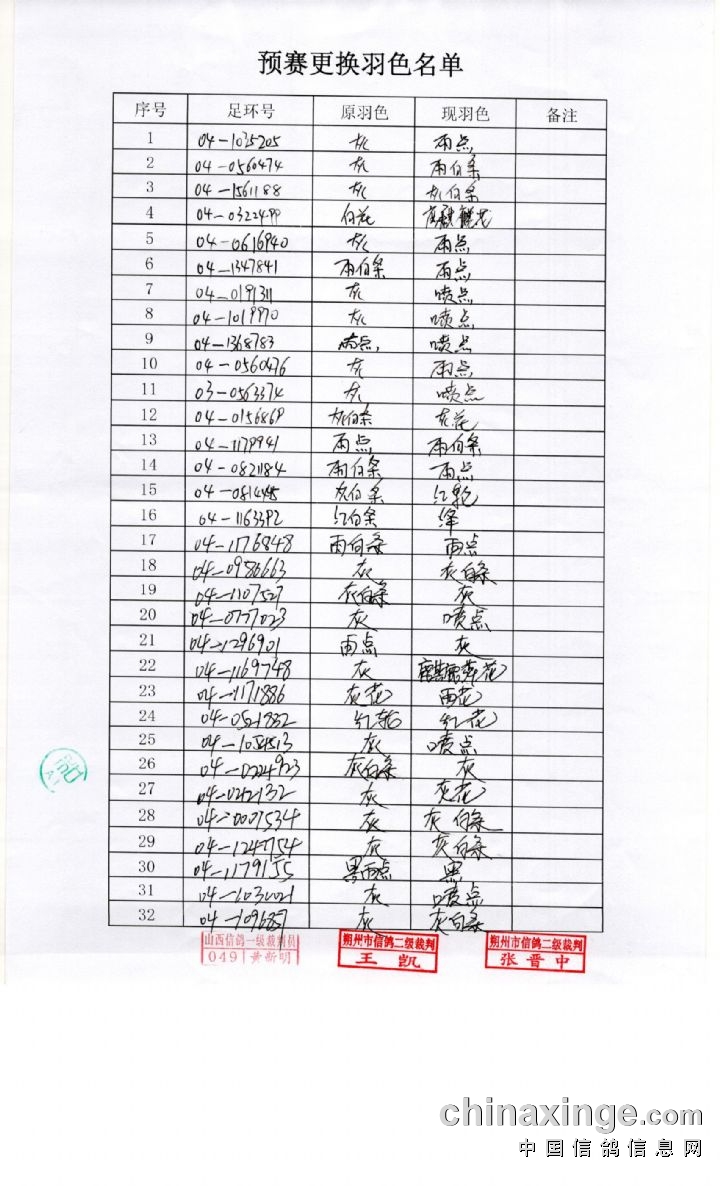 预赛更换羽色名单
序号 足环号 原羽色 现羽色 备注
1 04-1035205 灰 雨点
2 04-0560474 灰 雨白条
3 04-1561188 灰 灰白条
4 04-0322499 白花
5 04-0616940 灰 雨点
6 04-1347841 雨白条 雨点
7 04-0191311 灰 喷点
8 04-1019970 灰 喷点
9 04-1368783 喷点
10 04-0560476 灰 雨点
11 03-0563374 灰 喷点
12 04-0156869 灰白条 灰花
13 04-1179941 雨点 雨白条
14 04-0821184 雨白条 雨点
15 灰白条 红轮
16 04-1163392 红白条 绛
17 04-1176848 雨白条 雨点
18 04-0986663 灰 灰白条
19 04-1107527 灰白条 灰
20 04-0777023 灰 喷点
21 04-1296901 雨点 灰
22 04-1169748 灰
23 04-1171886 灰花 雨花
24 04-0521882 红轮 红花
25 04-1054513 灰 喷点
26 04-0224923 灰白条 灰
27 04-0212132 灰 灰花
28 04-0001534 灰 灰白条
29 04-1247754 灰 灰白条
30 04-1179155 黑雨点 黑
31 灰 喷点
32 灰 灰白条
山西信鸽一级裁判员
049 黄新明
朔州市信鸽二级裁判
王凯
朔州市信鸽二级裁判
张晋中
chinaxinge.com
中国信鸽信息网